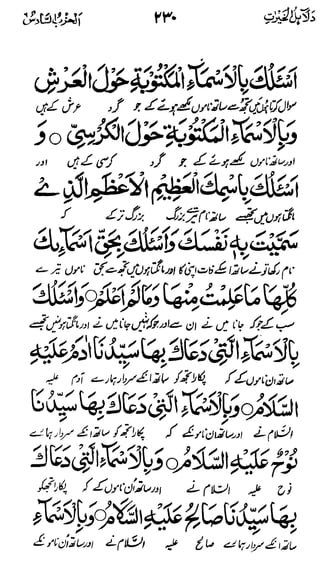 دلائل الخيرات ٢٣٠ الحزب السادس
اَسْئَلُكَ بِالْاَسْمَآءِ الْمَكْتُوْبَةِ حَوْلَ الْعَرْشِ
سوال کرتا ہوں میں تجھ سے ساتھ ناموں لکھے ہوئے کے جو گرد عرش کے ہیں
وَبِالْاَسْمَآءِ الْمَكْتُوْبَةِ حَوْلَ الْكُرْسِيِّ ○ وَ
اور ساتھ ناموں لکھے ہوئے کے جو گرد کرسی کے ہیں اور
اَسْئَلُكَ بِاسْمِكَ الْعَظِيْمِ الْاَعْظَمِ الَّذِيْ
مانگتا ہوں میں تجھسے ساتھ نام تیرے بزرگ بزرگ تر کے کہ
سَمَّيْتَ بِهٖ نَفْسَكَ وَاَسْئَلُكَ بِحَقِّ اَسْمَآئِكَ
نام رکھا تو نے ساتھ اسکے ذات اپنی کا اور مانگتا ہوں میں تجھ سے بحق ناموں تیرے
كُلِّهَا مَا عَلِمْتُ مِنْهَا وَمَا لَمْ اَعْلَمْ ○ وَاَسْئَلُكَ
سب کے جو کہ جانا میں نے ان سے اور جو کہ نہیں جانا میں نے اور مانگتا ہوں میں تجھسے
بِالْاَسْمَآءِ الَّتِيْ دَعَاكَ بِهَا سَيِّدُنَا اٰدَمُ عَلَيْهِ
ساتھ ان ناموں کے کہ پکارا تجھ کو ساتھ انکے سردار ہمارے آدم علیہ
السَّلَامُ ○ وَبِالْاَسْمَآءِ الَّتِيْ دَعَاكَ بِهَا سَيِّدُنَا
السّلام نے اور ساتھ ان ناموں کے کہ پکارا تجھ کو ساتھ انکے سردار ہمارے
نُوْحٌ عَلَيْهِ السَّلَامُ ○ وَبِالْاَسْمَآءِ الَّتِيْ دَعَاكَ
نوح علیہ السلام نے اور ساتھ ان ناموں کے کہ پکارا تجھکو
بِهَا سَيِّدُنَا صَالِحٌ عَلَيْهِ السَّلَامُ ○ وَبِالْاَسْمَآءِ
ساتھ انکے سردار ہمارے صالح علیہ السّلام نے اور ساتھ ان ناموں کے